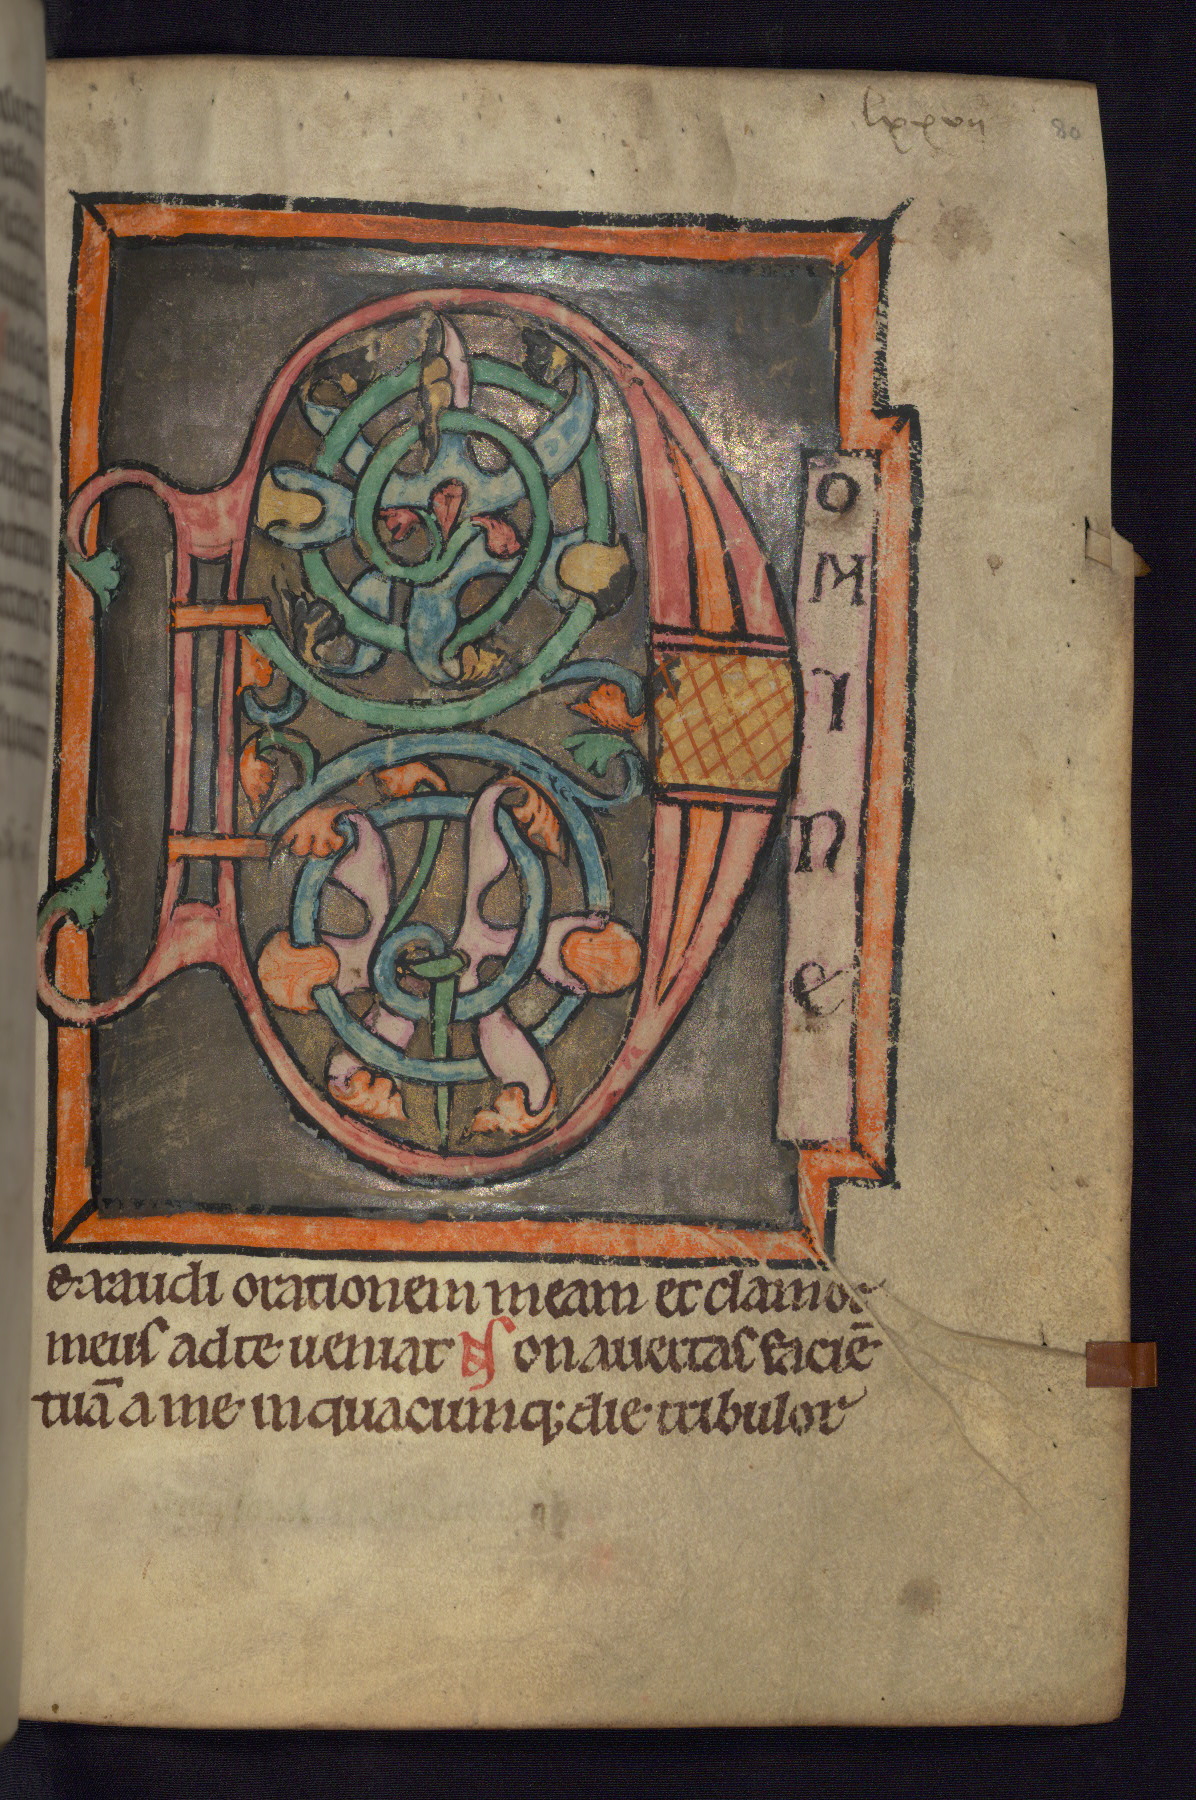 80
D
O
M
I
N
E
exaudi orationem meam et clamor
meus ad te veniat Non avertas faciē
tuā a me in quacumq; die tribulor